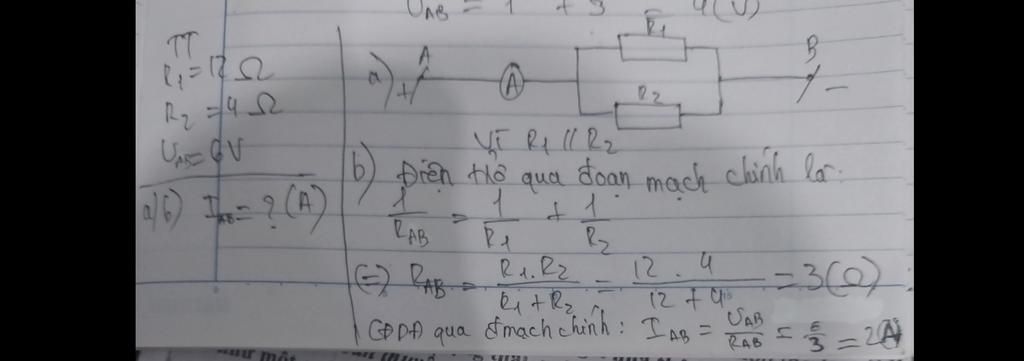 U_AB = 1 + 3 4(V)
TT
R1 = 12 Ω
R2 = 4 Ω
U_AB = 6V
a/b) I_AB = ? (A)
a) A + A R1 R2 B -
Vì R1 // R2
b) Điện trở qua đoạn mạch chính là:
1/R_AB = 1/R1 + 1/R2
(=) R_AB = R1.R2/R1+R2 = 12.4/12+4 = 3(Ω)
CĐDĐ qua đmạch chính: I_AB = U_AB/R_AB = 6/3 = 2(A)